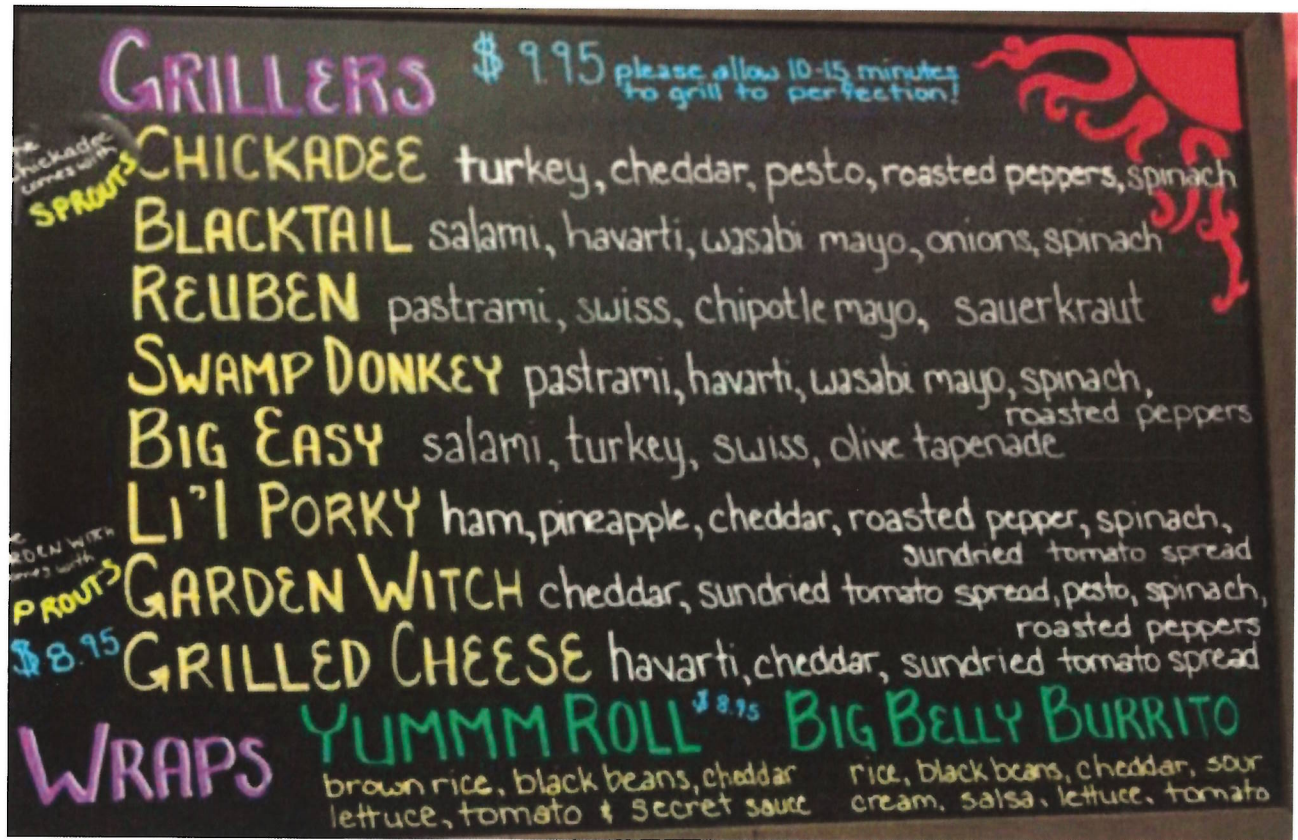 GRILLERS $9.95 please allow 10-15 minutes
to grill to perfection!
chickadee
comes with
SPROUTS
CHICKADEE turkey, cheddar, pesto, roasted peppers, spinach
BLACKTAIL salami, havarti, wasabi mayo, onions, spinach
REUBEN pastrami, swiss, chipotle mayo, sauerkraut
SWAMP DONKEY pastrami, havarti, wasabi mayo, spinach,
roasted peppers
BIG EASY salami, turkey, swiss, olive tapenade
LI'L PORKY ham, pineapple, cheddar, roasted pepper, spinach,
sundried tomato spread
WITCH
with
PROUTS
GARDEN WITCH cheddar, sundried tomato spread, pesto, spinach,
roasted peppers
$8.95 GRILLED CHEESE havarti, cheddar, sundried tomato spread
WRAPS
YUMMM ROLL $8.95
brown rice, black beans, cheddar
lettuce, tomato & secret sauce
BIG BELLY BURRITO
rice, black beans, cheddar, sour
cream, salsa, lettuce, tomato